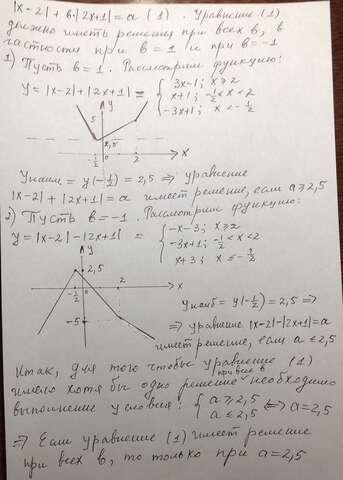 |x-2| + в·|2x+1| = a (1). Уравнение (1)
должно иметь решения при всех в, в
частности при в = 1 и при в = -1
1) Пусть в = 1. Рассмотрим функцию:
y = |x-2| + |2x+1| = { 3x-1; x ≥ 2
x+1; -1/2 < x < 2
-3x+1; x < -1/2
y
5
2,5
-1/2 0 2 x
yнаим = y(-1/2) = 2,5 ⇒ уравнение
|x-2| + |2x+1| = a имеет решение, если a ≥ 2,5
2) Пусть в = -1. Рассмотрим функцию:
y = |x-2| - |2x+1| = { -x-3; x ≥ 2
-3x+1; -1/2 < x < 2
x+3; x ≤ -1/2
y
2,5
-1/2 0 2 x
-5
yнаиб = y(-1/2) = 2,5 ⇒
⇒ уравнение |x-2| - |2x+1| = a
имеет решение, если a ≤ 2,5
Итак, для того чтобы уравнение (1)
имело хотя бы одно решение при всех в необходимо
выполнение условия: { a ≥ 2,5
a ≤ 2,5 ⇔ a = 2,5
⇒ Если уравнение (1) имеет решение
при всех в, то только при a = 2,5